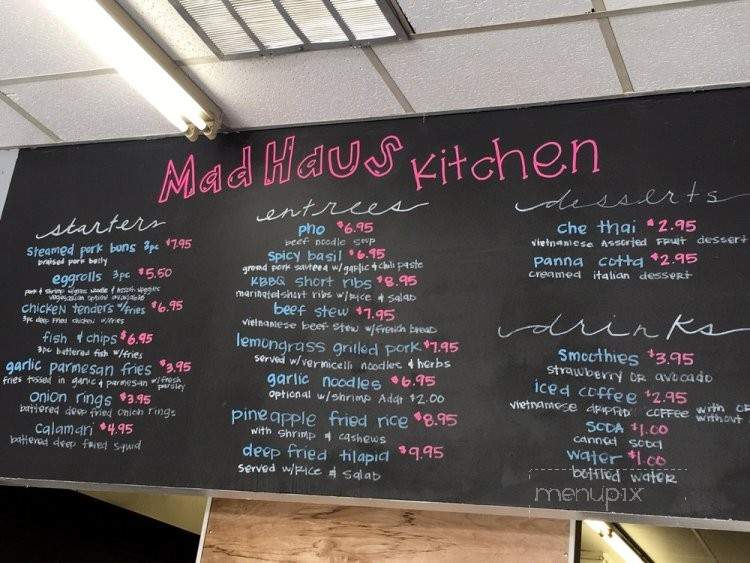 Mad Haus Kitchen
starters
steamed pork buns 3pc $7.95
braised pork belly
eggrolls 3pc $5.50
pork & shrimp w/glass noodle & fresh veggies
vegetarian option available
chicken tenders w/fries $6.95
3pc deep fried chicken w/fries
fish & chips $6.95
3pc battered fish w/fries
garlic parmesan fries $3.95
fries tossed in garlic & parmesan w/fresh parsley
onion rings $3.95
battered deep fried onion rings
calamari $4.95
battered deep fried squid
entrees
pho $6.95
beef noodle soup
spicy basil $6.95
ground pork sauteed w/garlic & chili paste
KBBQ short ribs $8.95
marinated short ribs w/rice & salad
beef stew $7.95
vietnamese beef stew w/french bread
lemongrass grilled pork $7.95
served w/vermicelli noodles & herbs
garlic noodles $6.95
optional w/shrimp Add $2.00
pineapple fried rice $8.95
with shrimp & cashews
deep fried tilapia $9.95
served w/rice & salad
desserts
che thai $2.95
vietnamese assorted fruit dessert
panna cotta $2.95
creamed italian dessert
drinks
Smoothies $3.95
strawberry or avocado
iced coffee $2.95
vietnamese dripped coffee with or without
SODA $1.00
canned soda
water $1.00
bottled water
menupix